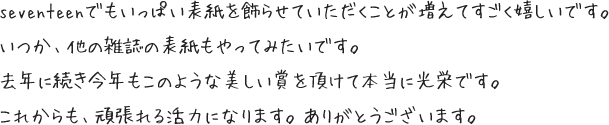 seventeenでもいっぱい表紙を飾らせていただくことが増えてすごく嬉しいです。
いつか、他の雑誌の表紙もやってみたいです。
去年に続き今年もこのような美しい賞を頂けて本当に光栄です。
これからも、頑張れる活力になります。ありがとうございます。